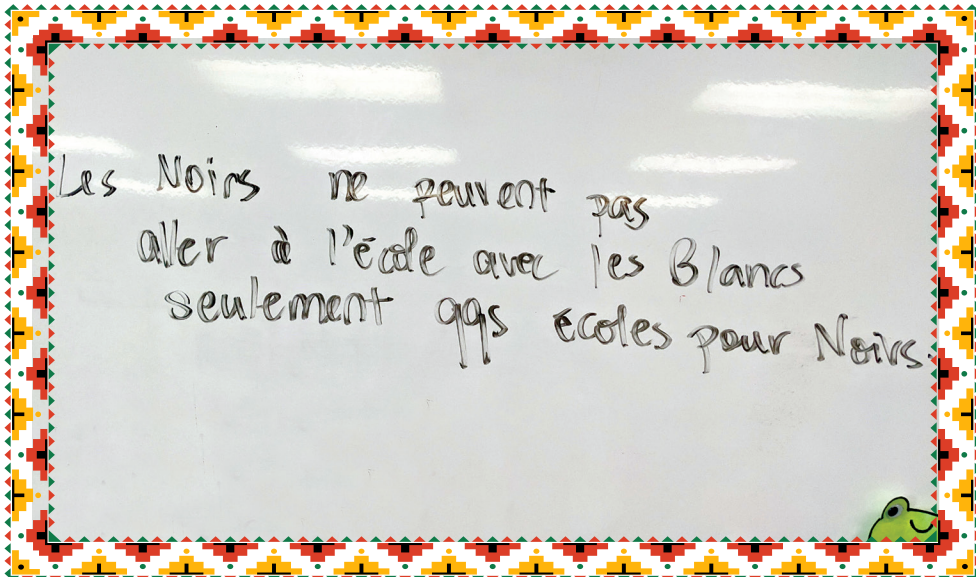 Les Noirs ne peuvent pas
aller à l'école avec les Blancs
seulement qqs écoles pour Noirs.